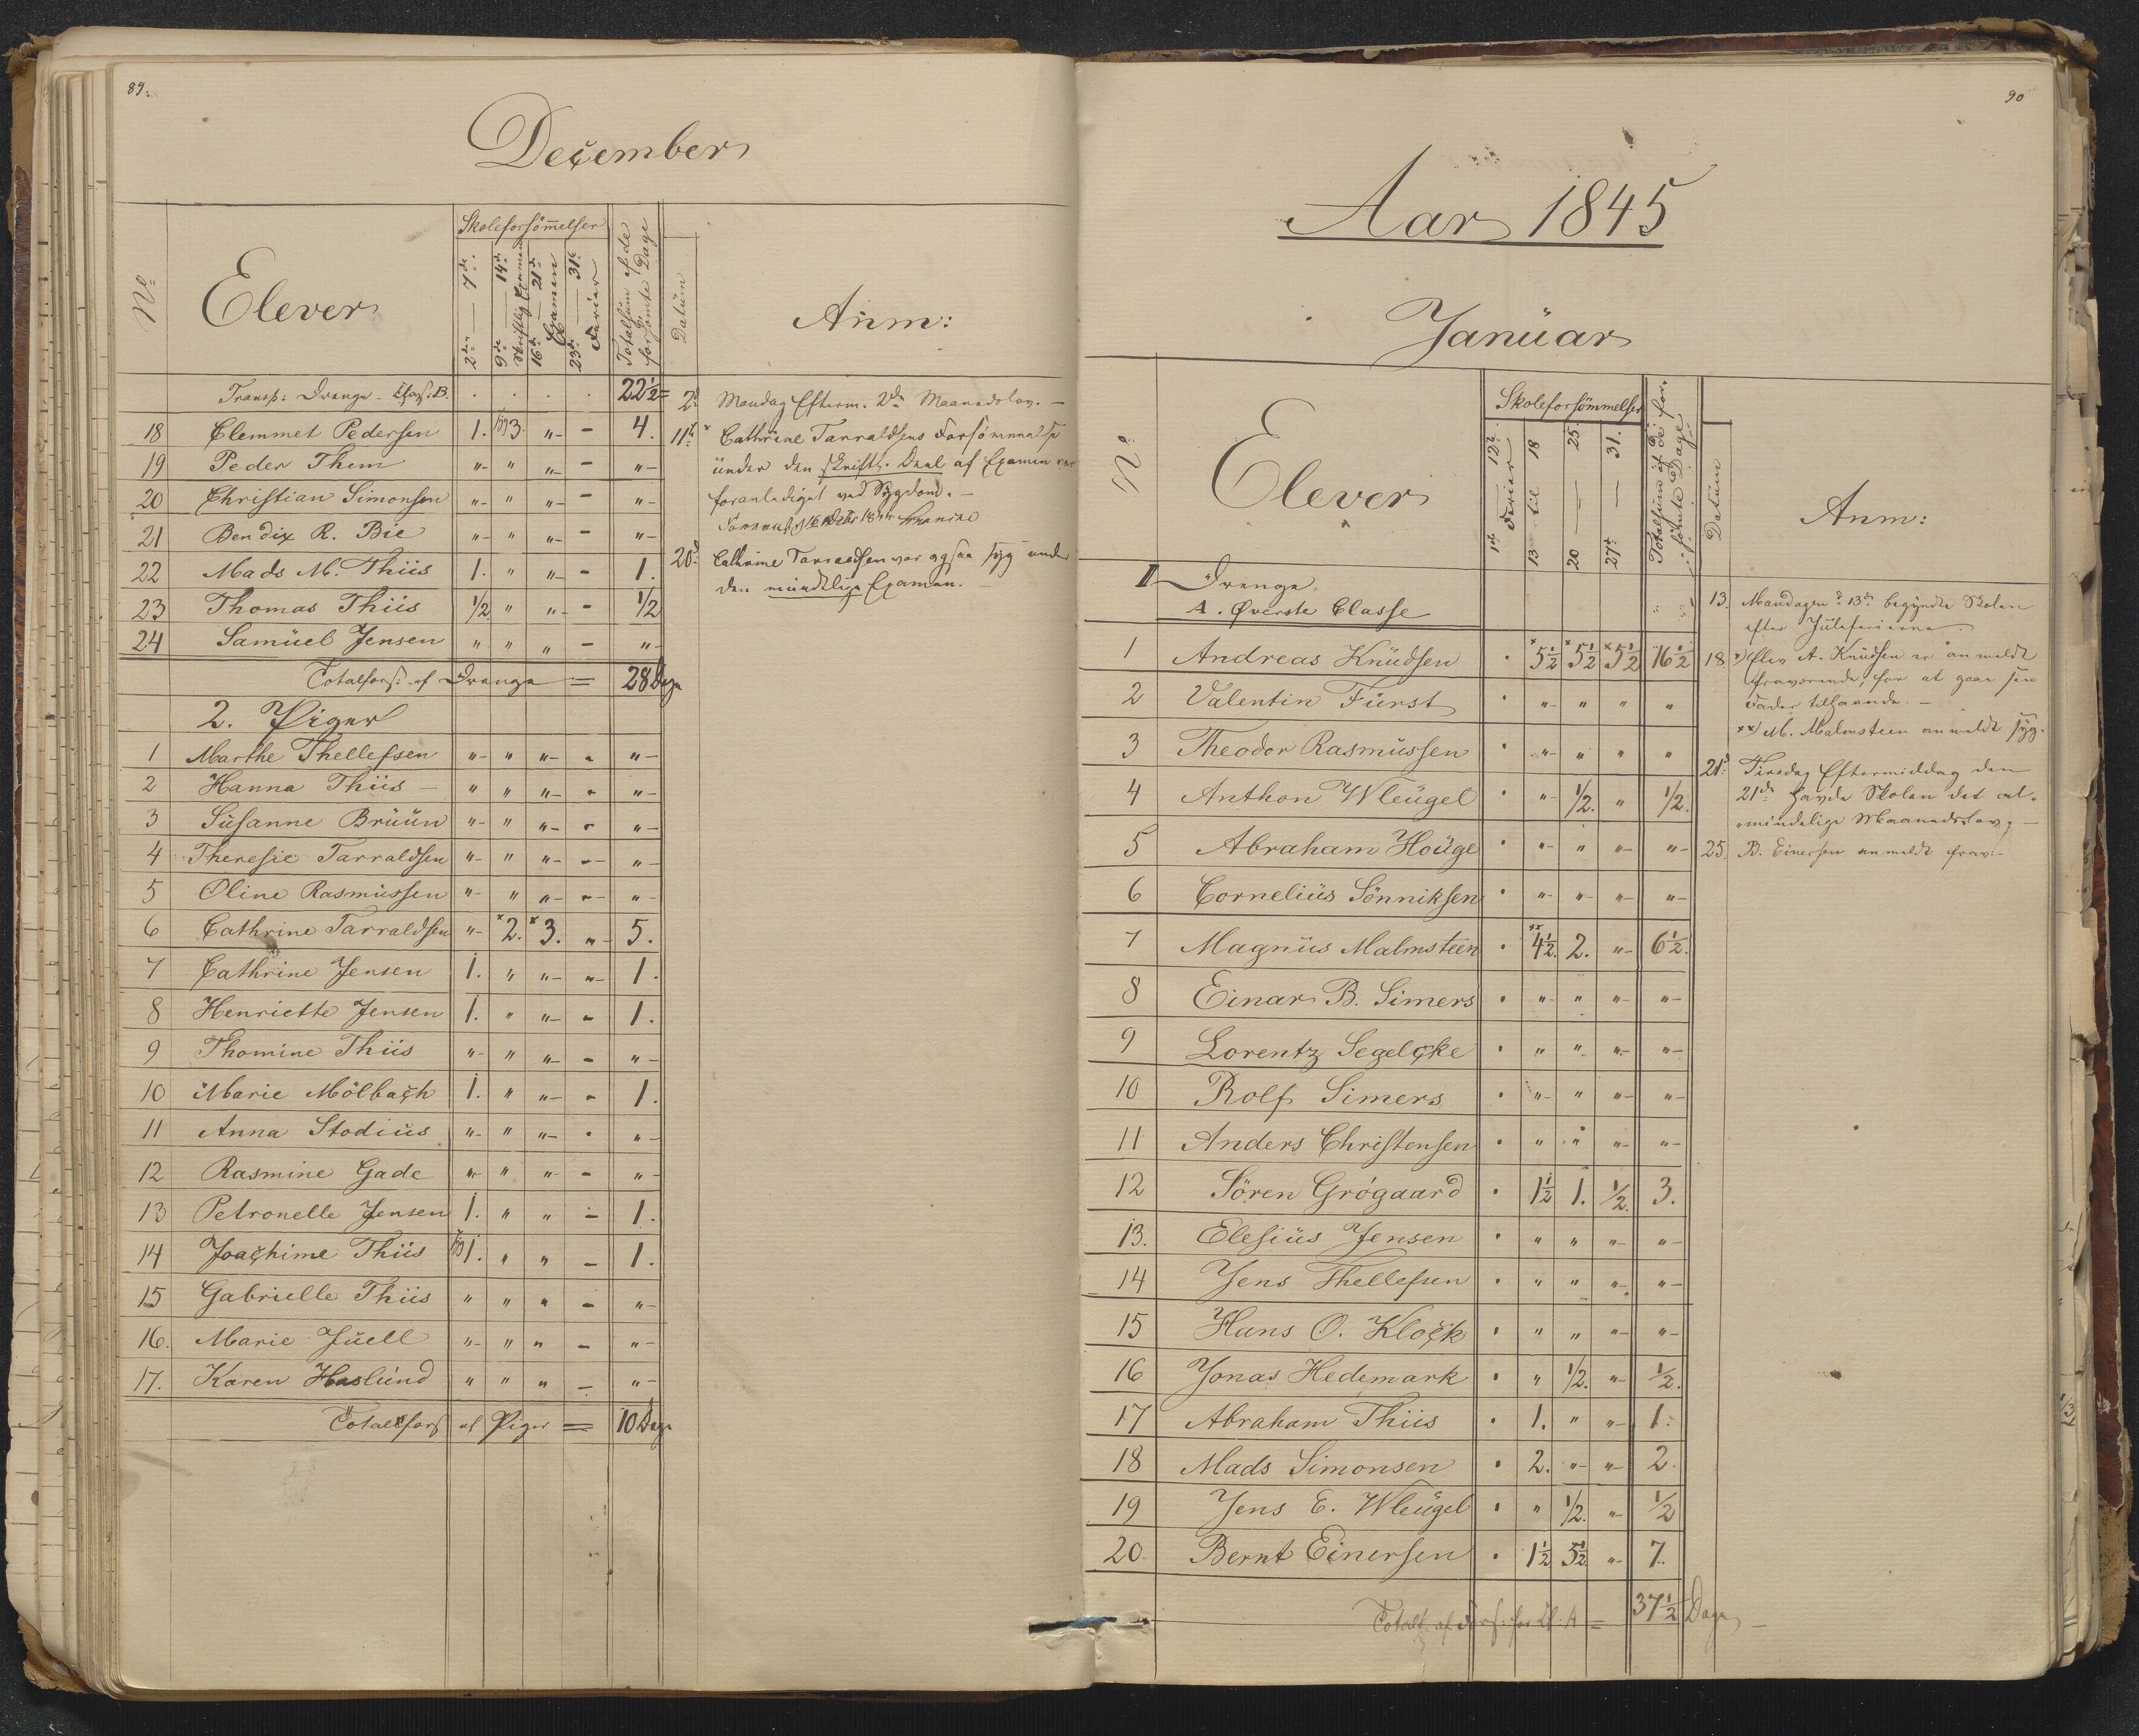 89.
December
No
Elever
Skoleforsömmelser
2den — 7de
9de — 14de
16de — 21de Examen
23de — 31te Ferier
Totalsüm af de forsömte Dage
Datüm
Anm:
Transp: Drenge - Class: B. . . . . 22½
18 Clemmet Pedersen 1. syg 3. " - 4.
19 Peder Them " " " - "
20 Christian Simonsen " " " - "
21 Bendix R. Bie " " " - "
22 Mads M. Thiis 1. " " - 1.
23 Thomas Thiis ½ " " - ½
24 Samüel Jensen " " " - "
Totalfors: af Drenge = 28 Dage
2. Piger
1 Marthe Thellefsen " " " - "
2 Hanna Thiis " " " - "
3 Süsanne Brüün " " " - "
4 Theresie Tarraldsen " " " - "
5 Oline Rasmüssen " " " - "
6 Cathrine Tarraldsen " x2. x3. " 5.
7 Cathrine Jensen 1. " " " 1.
8 Henriette Jensen 1. " " - 1.
9 Thomine Thiis " " " - "
10 Marie Mölbach 1. " " - 1.
11 Anna Stodiüs " " " - "
12 Rasmine Gade " " " - "
13 Petronelle Jensen 1. " " - 1.
14 Joachime Thiis syg 1. " " - 1.
15 Gabrielle Thiis " " " - "
16. Marie Jüell " " " - "
17. Karen Haslünd " " " - "
Totalfors af Piger = 10 Dage
2d Mandag Efterm. 2den Maanedslov. —
11te x Cathrine Tarraldsens Forsömmelse
ünder den skriftl. Deel af Examen var
foranlediget ved Sygdom. —
20de Cathrine Tarraldsen var ogsaa syg under
den mündtlige Examen. —
90
Aar 1845
Janüar
No
Elever
Skoleforsömmelser
1ste — 12te Ferier
13 til 18
20 — 25.
27de — 31.
Totalsüm af de forsömte Dage
Datüm
Anm:
I Drenge.
A. Øverste Classe
1 Andreas Knüdsen . x5½ x5½ x5½ 16½
2 Valentin Fürst . " " " "
3 Theodor Rasmüssen . " " " "
4 Anthon Wleügel . " ½. " ½.
5 Abraham Hoüge . " " " "
6 Corneliüs Sönniksen . " " " "
7 Magnüs Malmsteen . xx4½. 2. " 6½.
8 Einar B. Simers . " " " "
9 Lorentz Segelcke . " " " "
10 Rolf Simers . " " " "
11 Anders Christensen . " " " "
12 Sören Grógaard . 1½ 1. ½. 3.
13. Elesiüs Jensen . " " " "
14 Jens Thellefsen . " " " "
15 Hans O. Klock . " " " "
16 Jonas Hedemark . " ½. " ½.
17 Abraham Thiis . 1. " " 1.
18 Mads Simonsen . 2. " " 2.
19 Jens E. Wleügel . " ½. " ½
20 Bernt Einersen . 1½ 5½ " 7.
Totals. af Fors. for Cl. A = 37½ Dage —
13. Mandagen d. 13de begyndte Skolen
efter Jüleferierne.
18 x) Elev A. Knüdsen er anmeldt
fraværende, for at gaae sin
Fader tilhaande. —
xx) M. Malmsteen anmeldt syg.
21de Tirsdag Eftermiddag den
21de havde Skolen det al-
mindelige Maanedslov. —
25. B. Einersen anmeldt frav: —